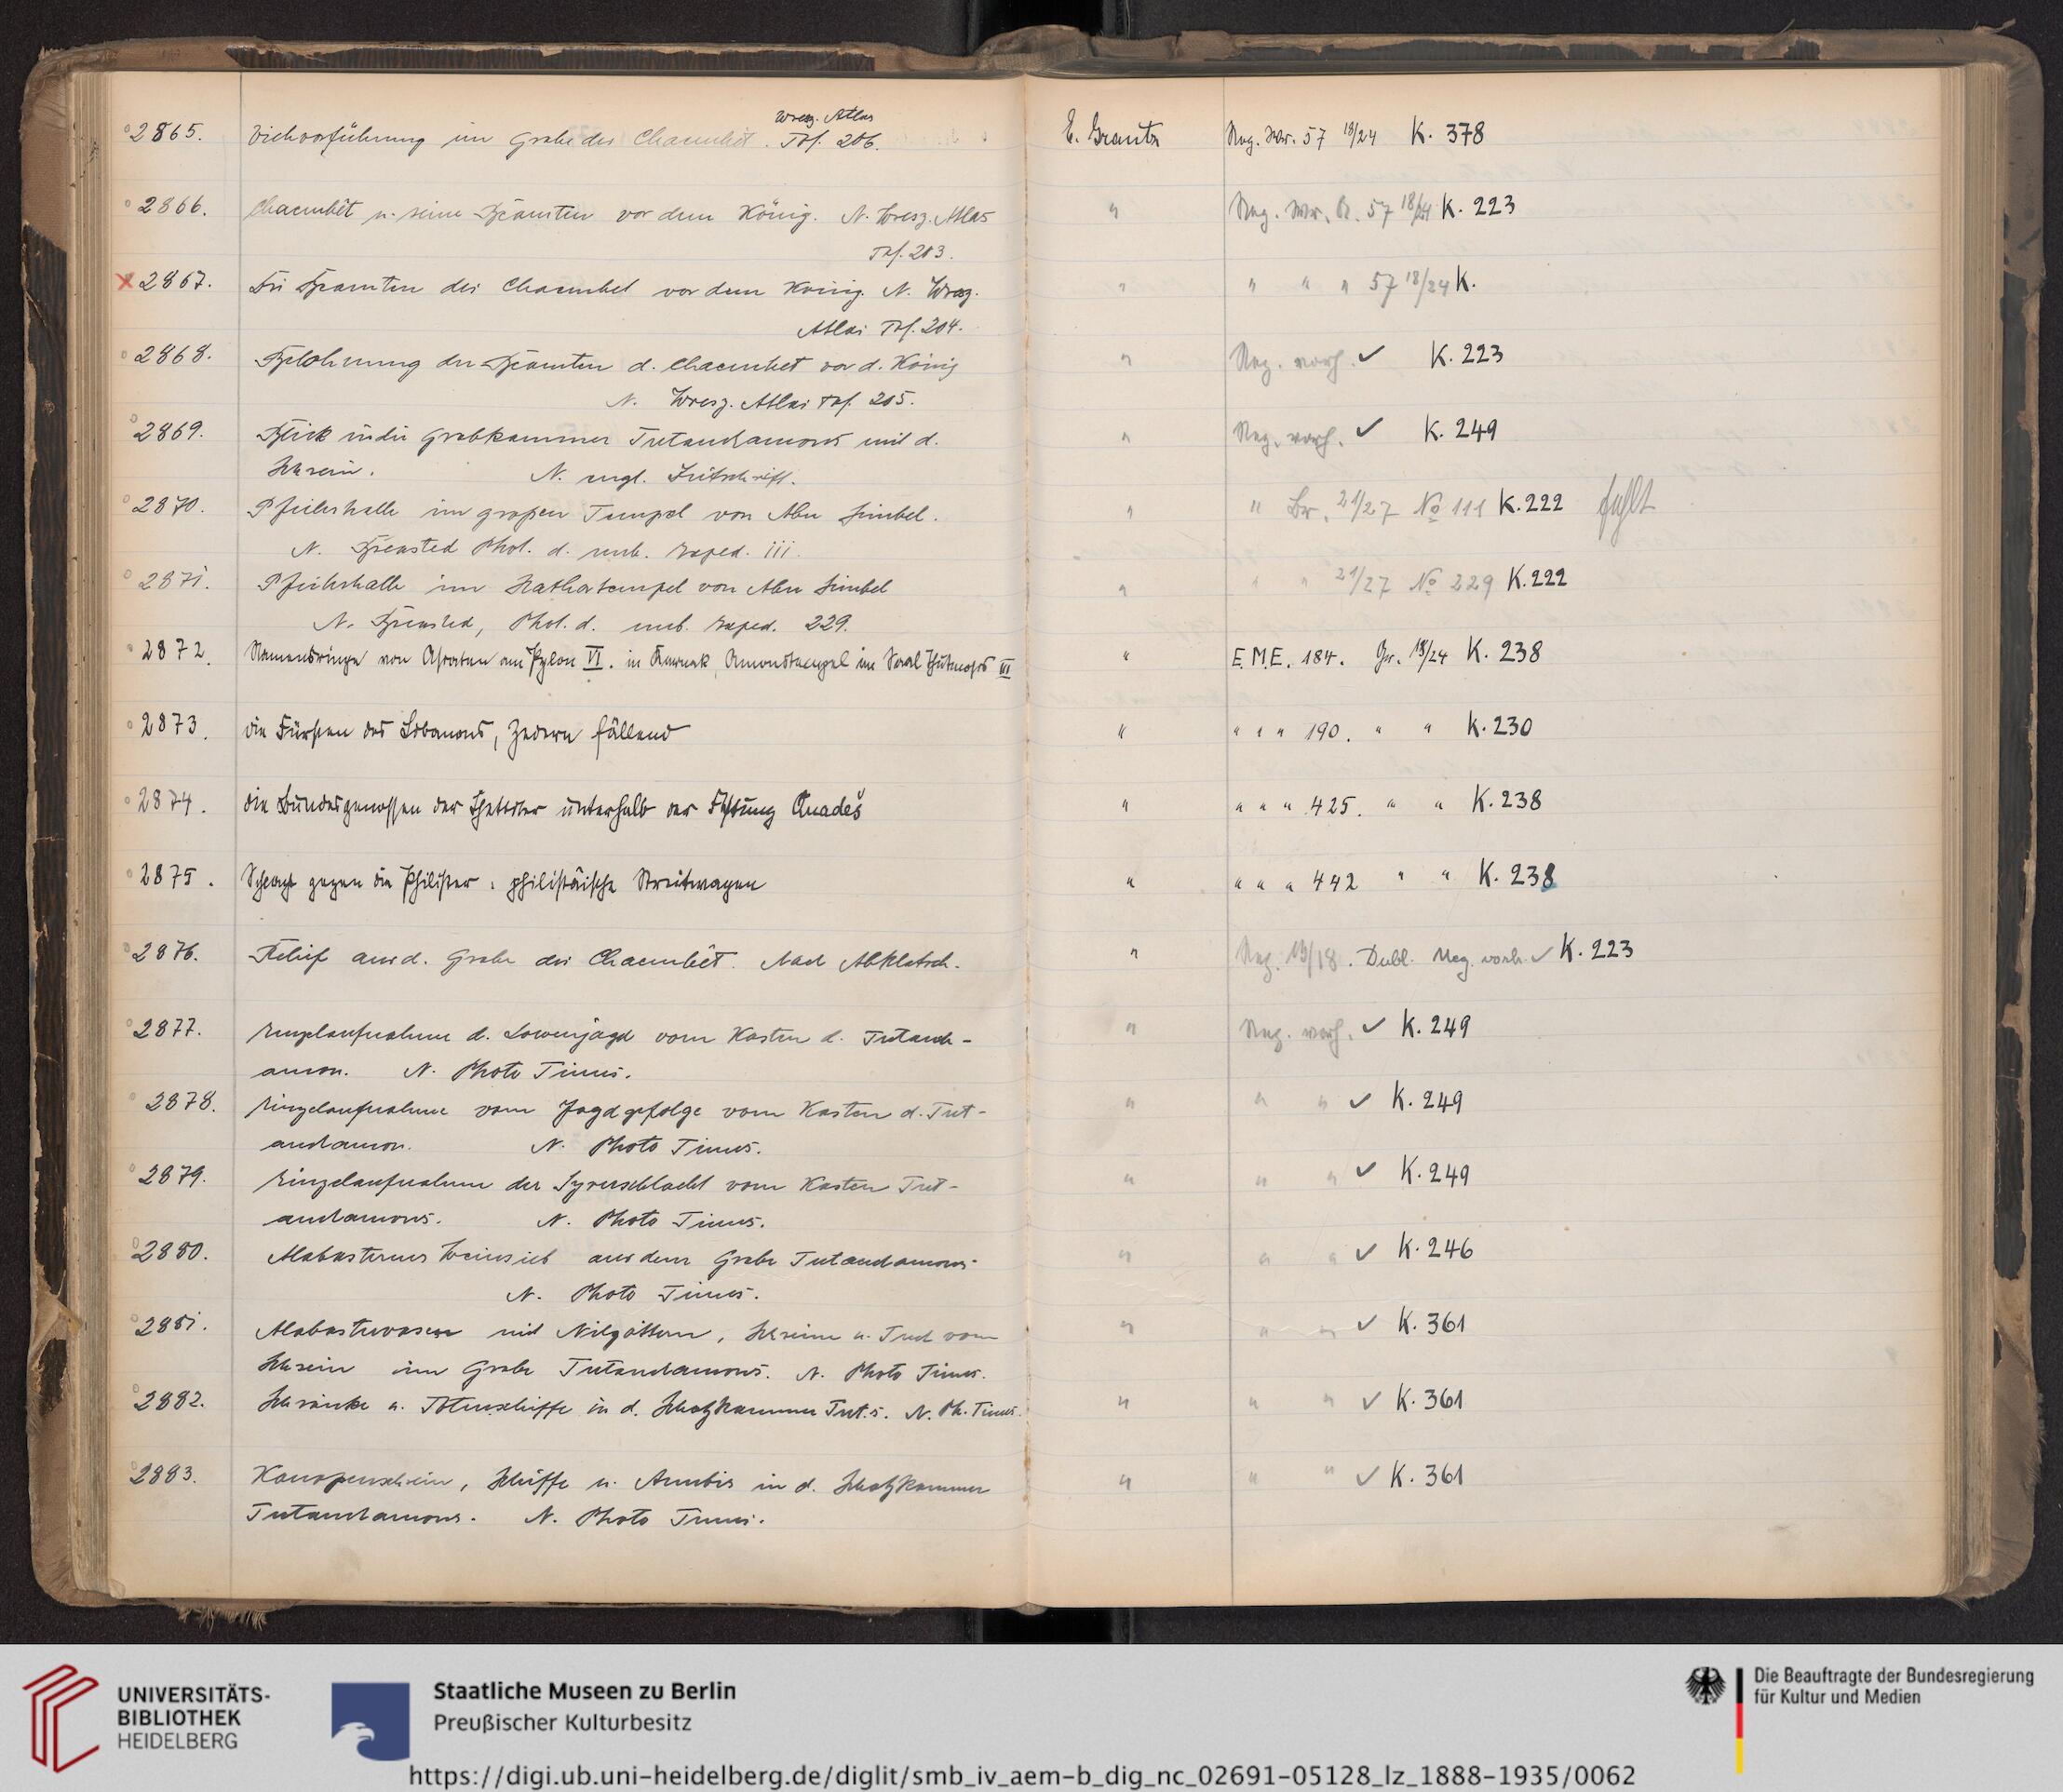 2865. Viehvorführung im Grabe des Chaemhêt. Wresz. Atlas Taf. 206. E. Grantz Neg. Wr. 57 18/24 K. 378
2866. Chaemhêt u. seine Beamten vor dem König. N. Wresz. Atlas " Neg. Wr. 57 18/24 K. 223
Taf. 203.
x 2867. Die Beamten des Chaemhet vor dem König. N. Wresz. " " " " 57 18/24 K.
Atlas Taf. 204.
2868. Belohnung der Beamten d. Chaemhet vor d. König " Neg. vorh. ✓ K. 223
N. Wresz. Atlas Taf. 205.
2869. Blick in die Grabkammer Tutanchamons mit d. " Neg. vorh. ✓ K. 249
Schrein. N. engl. Zeitschrift.
2870. Pfeilerhalle im großen Tempel von Abu Simbel. " " Br. 21/27 No 111 K. 222 fehlt
N. Breasted Phot. d. nub. Exped. 111.
2871. Pfeilerhalle im Hathortempel von Abu Simbel " " " 21/27 No 229 K. 222
N. Breasted, Phot. d. nub. Exped. 229.
2872. Namensringe von Asiaten am Pylon VI. in Karnak, Amonstempel im Saal Thutmosis III " E.M.E. 184. Gr. 18/24 K. 238
2873. die Fürsten des Libanons, Zedern fällend " " " " 190. " " K. 230
2874. die Bundesgenossen der Chettiter unterhalb der Festung Quadeš " " " " 425. " " K. 238
2875. Schlacht gegen die Philister, philistäische Streitwagen " " " " 442 " " K. 238
2876. Relief aus d. Grabe des Chaemhêt. Nach Abklatsch. " Neg. 13/18. Dubl. Neg. vorh. ✓ K. 223
2877. Einzelaufnahme d. Löwenjagd vom Kasten d. Tutanch- " Neg. vorh. ✓ K. 249
amon. N. Photo Times.
2878. Einzelaufnahme vom Jagdgefolge vom Kasten d. Tut- " " " ✓ K. 249
anchamon. N. Photo Times.
2879. Einzelaufnahme der Syrerschlacht vom Kasten Tut- " " " ✓ K. 249
anchamons. N. Photo Times.
2880. Alabasternes Weinsieb aus dem Grabe Tutanchamons " " " ✓ K. 246
N. Photo Times.
2881. Alabastervasen mit Nilgöttern, Schreine u. Tuch vom " " " ✓ K. 361
Schrein im Grabe Tutanchamons. N. Photo Times.
2882. Schränke u. Totenschiffe in d. Schatzkammer Tut.s. N. Ph. Times. " " " ✓ K. 361
2883. Kanopenschrein, Schiffe u. Anubis in d. Schatzkammer " " " ✓ K. 361
Tutanchamons. N. Photo Times.
UNIVERSITÄTS-
BIBLIOTHEK
HEIDELBERG
Staatliche Museen zu Berlin
Preußischer Kulturbesitz
Die Beauftragte der Bundesregierung
für Kultur und Medien
https://digi.ub.uni-heidelberg.de/diglit/smb_iv_aem-b_dig_nc_02691-05128_lz_1888-1935/0062